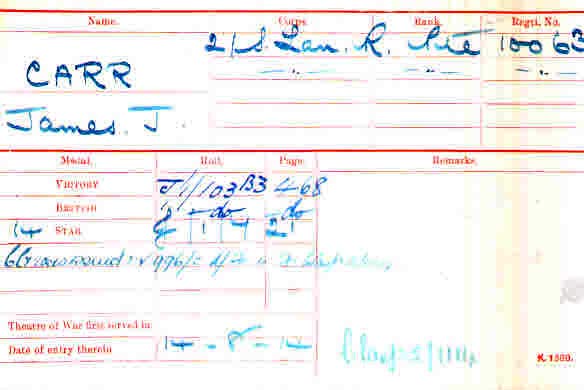 Name. Corps. Rank. Regtl. No.
2/S. Lan. R. Pte 10063
CARR -"- -"- -"-
James. J.
Medal. Roll. Page. Remarks.
VICTORY J/1/103 B3 468
BRITISH -do- -do
14 STAR
Theatre of War first served in
Date of entry therein 14 - 8 - 14
K. 1380.